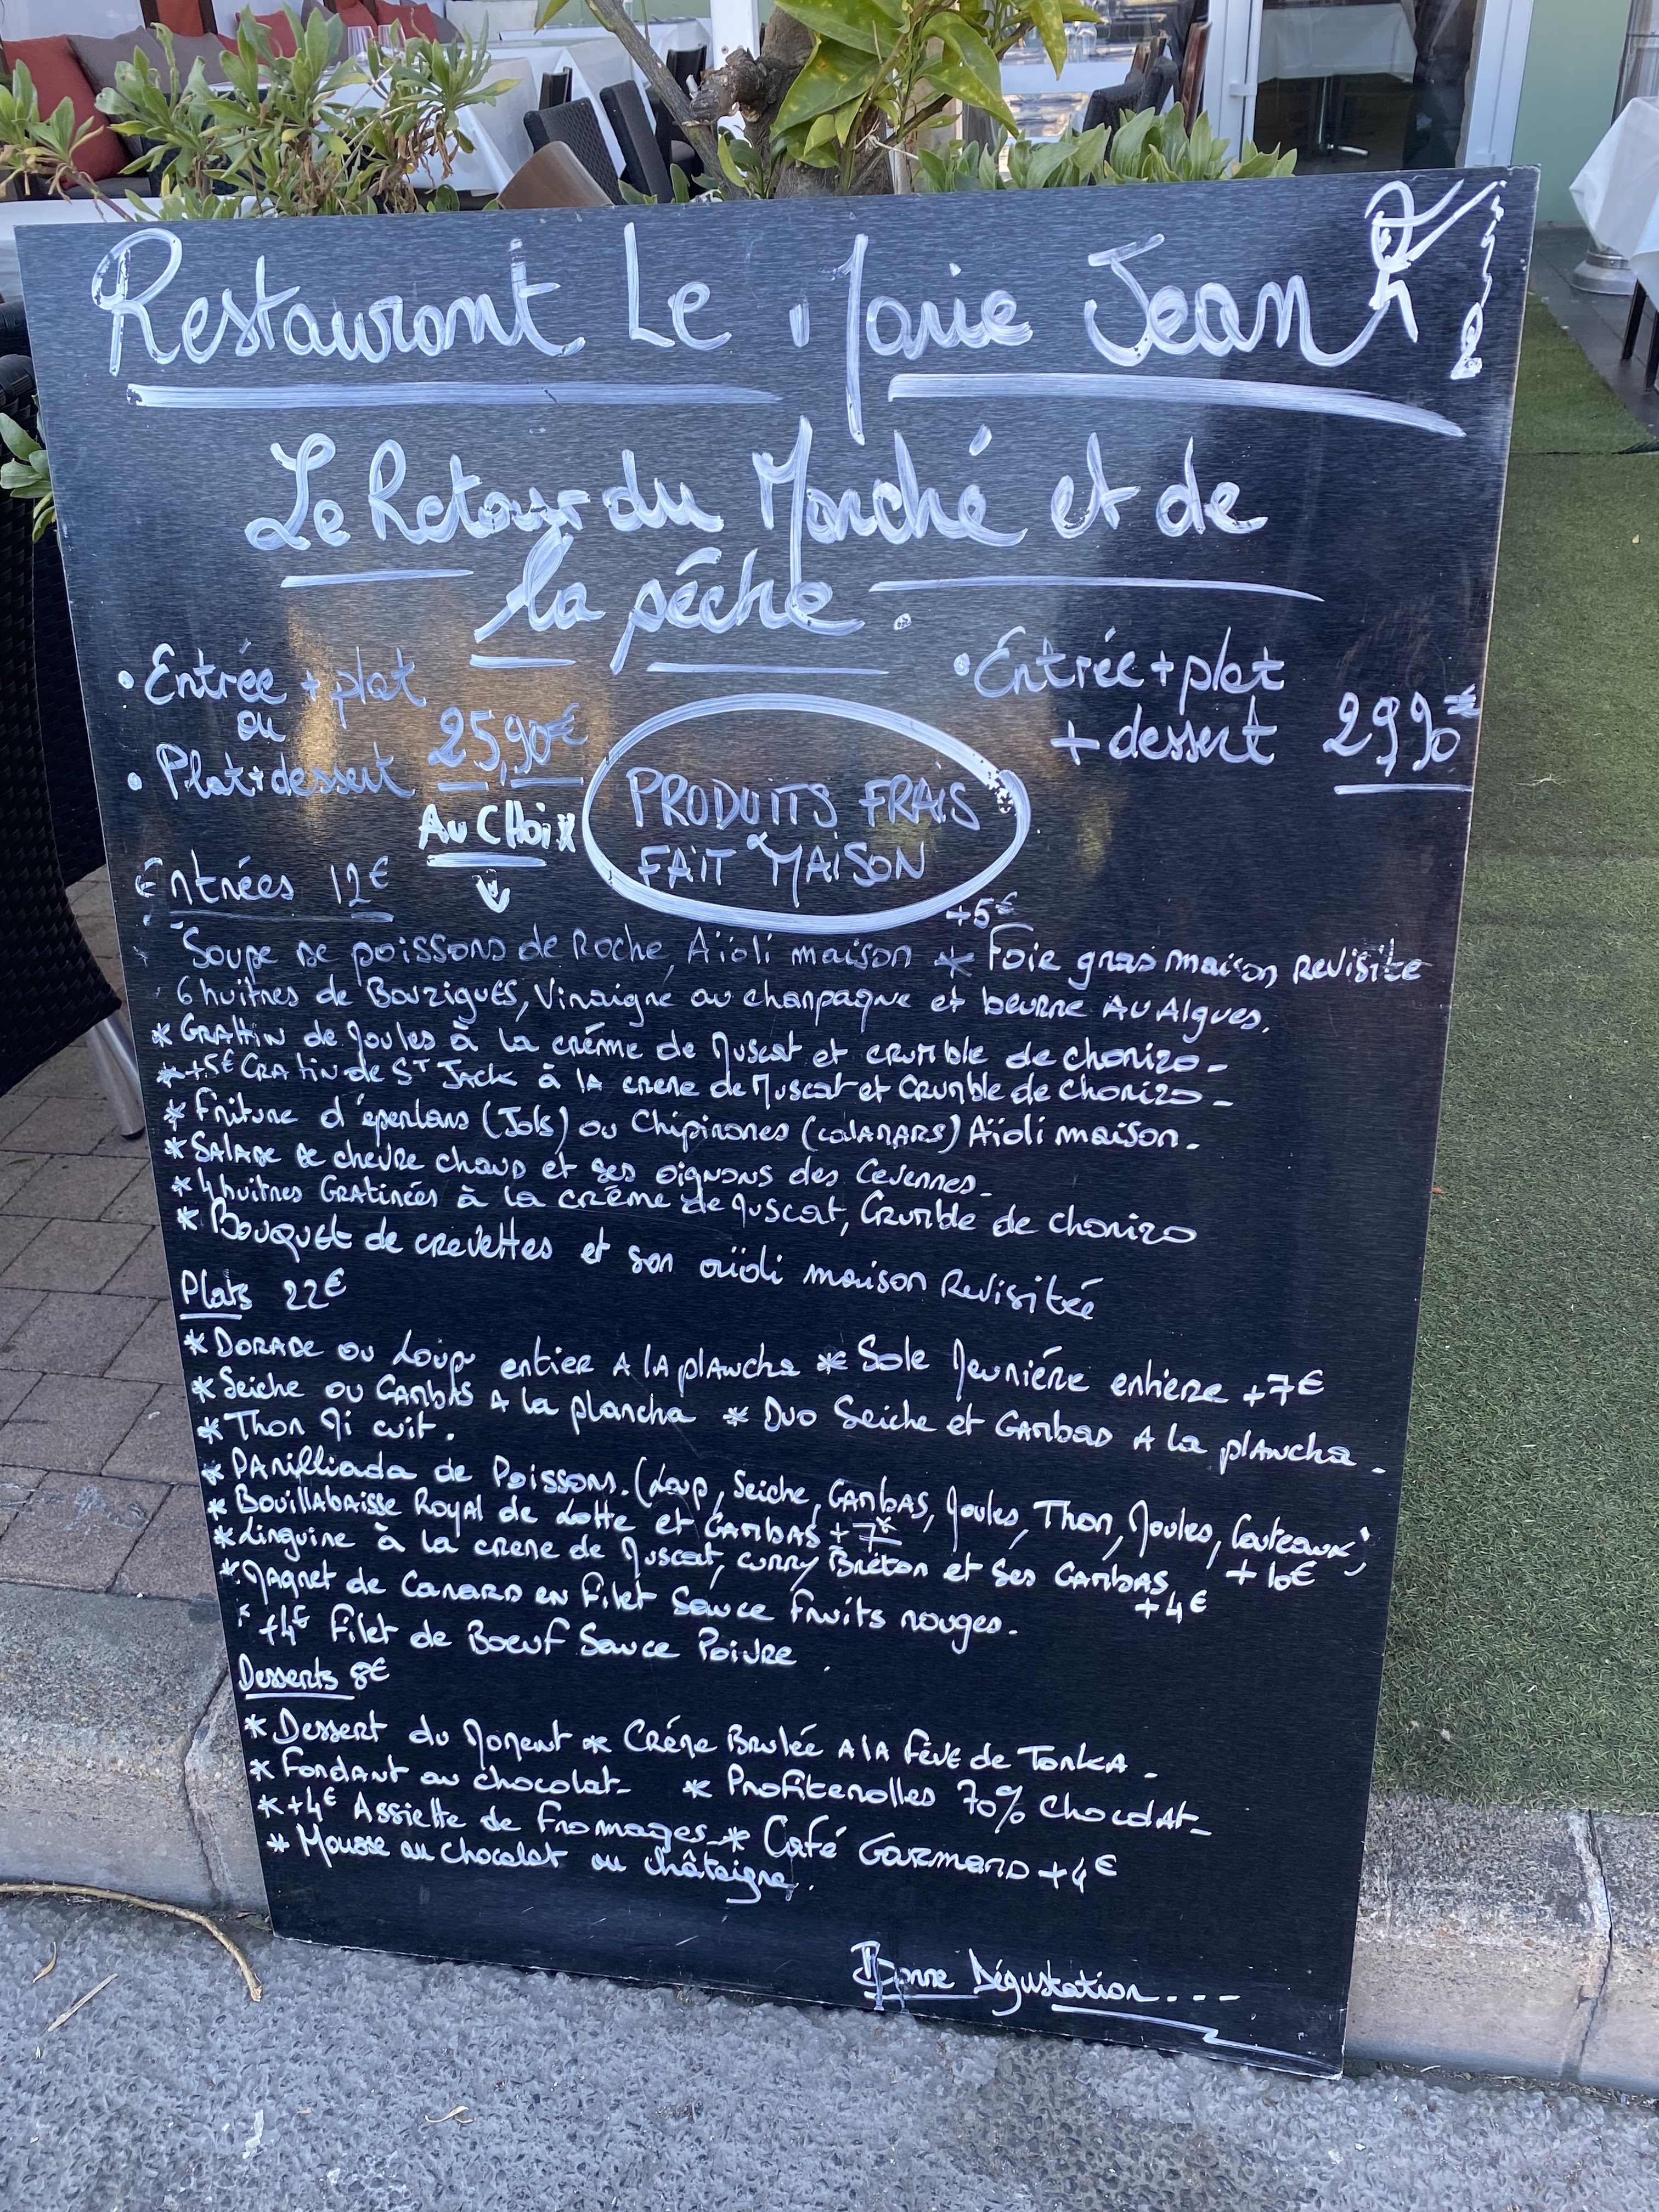 Restaurant Le Marie Jean
Le Retour du Marché et de
la pêche.
• Entrée + plat
ou
• Plat + dessert 25,90€
• Entrée + plat
+ dessert 29,90€
AU CHOIX
PRODUITS FRAIS
& FAIT MAISON
Entrées 12€
+5€
Soupe de poissons de Roche, Aïoli maison * Foie gras maison Revisite
6 huitres de Bouzigues, Vinaigre au champagne et beurre Au Algues.
* Grattin de Moules à la créme de Muscat et crumble de chorizo -
* +5€ Gratin de St Jack à la creme de Muscat et Crumble de Chorizo -
* Friture d'éperlans (Jols) ou Chipirones (calamars) Aïoli maison.
* Salade de chevre chaud et ses oignons des Cevennes -
* 4 huitres Gratinées à la créme de Muscat, Crumble de chorizo
* Bouquet de crevettes et son aïoli maison Revisitée
Plats 22€
* Dorade ou Loup entier A la plancha * Sole Meuniére entiere +7€
* Seiche ou Gambas A la plancha * Duo Seiche et Gambas A la plancha.
* Thon Mi cuit.
* Parilliada de Poissons. (Loup, Seiche, Gambas, Moules, Thon, Moules, Couteaux)
+10€
* Bouillabaisse Royal de Lotte et Gambas +7€
* Linguine à la creme de Muscat, curry Breton et ses Gambas
+4€
* Magret de Canard en Filet Sauce Fruits rouges.
* +4€ Filet de Boeuf Sauce Poivre.
Desserts 8€
* Dessert du Moment * Créme Brulée A la Féve de Tonka.
* Fondant au chocolat - * Profiterolles 70% Chocolat -
* +4€ Assiette de Fromages - * Café Gourmand +4€
* Mousse au chocolat ou châtaigne.
Bonne Dégustation...